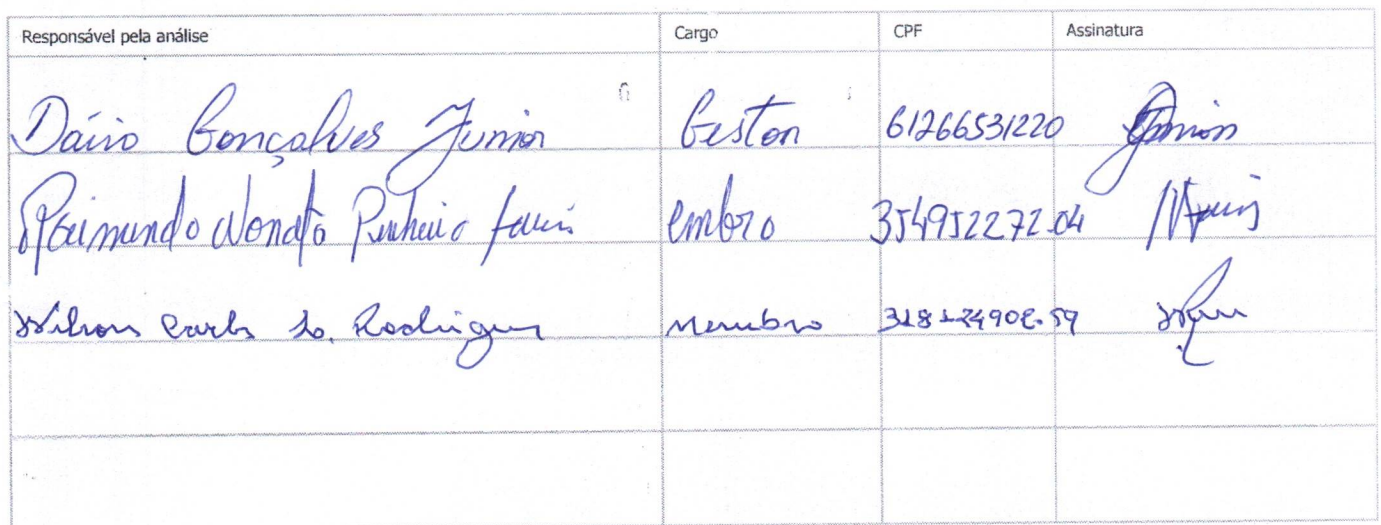 Responsável pela análise Cargo CPF Assinatura
Dário Gonçalves Junior Gestor 61266531220 Junior
Raimundo Nonato Pinheiro Farias embro 354952272-04
Wilson Carlos Rodrigues Membro